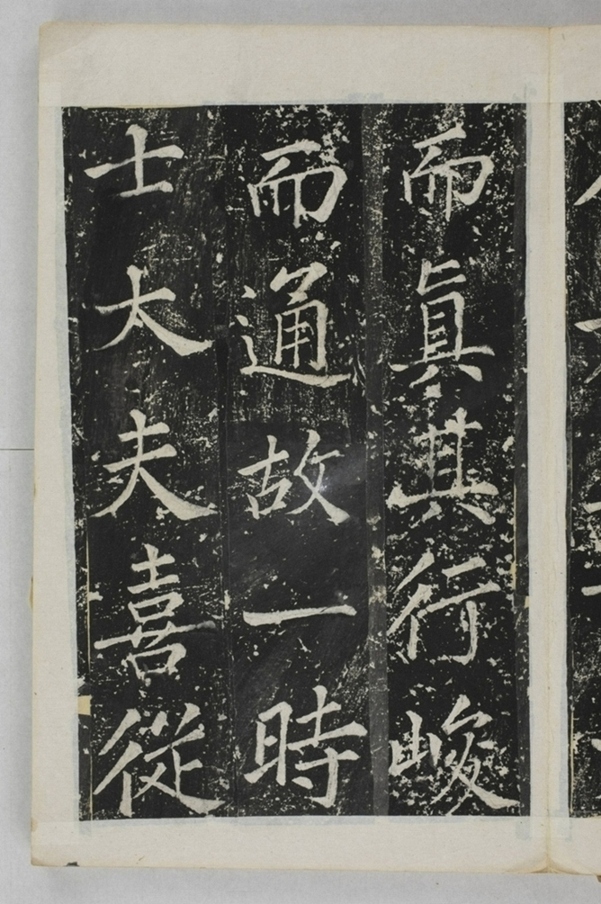 而眞其行峻
而通故一時
士大夫喜從